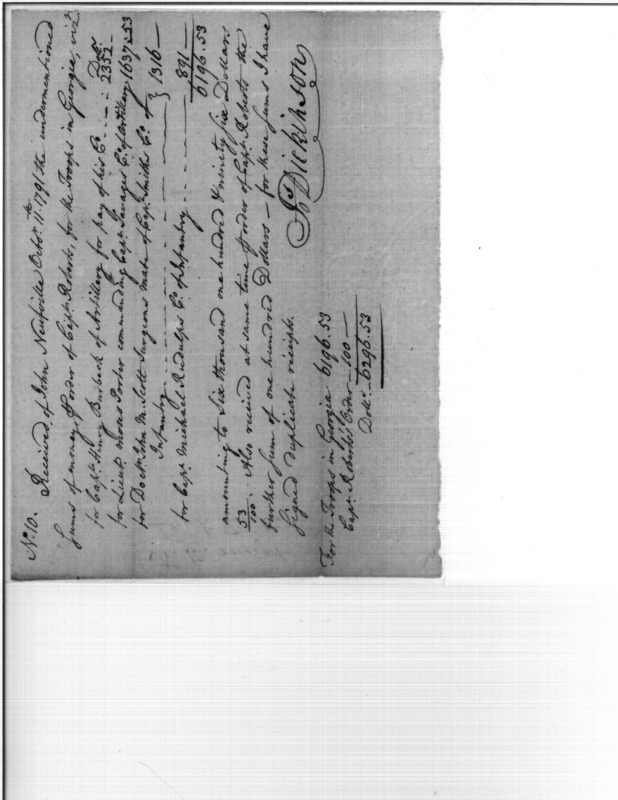 No. 10. Received of John Neufville Octobr. 11th. 1791 the undermentioned
sums of money, & order of Capt. Roberts, for the Troops in Georgia, vizt.
Dolrs.
for Capt. Henry Burbeck of Artillery for pay of his Co. - - - 2352 -
for Lieut. Moses Porter commanding Capt. Savages Co. of Artillery 1637.53
for Doctr. John M. Scott Surgeons mate of Capt. Smiths Co. of } 1316 -
Infantry
for Capt. Michall Rudulps Co. of Infantry - - - - 891 -
6196.53
amounting to Six thousand one hundred & ninety six Dollars
53/100. Also received at same time & order of Capt. Roberts the
further sum of one hundred Dollars - for these sums I have
signed duplicate receipts.
Jo. Dickinson
For the Troops in Georgia 6196.53
Capt. Roberts's Order - 100 -
Dolls. 6296.53